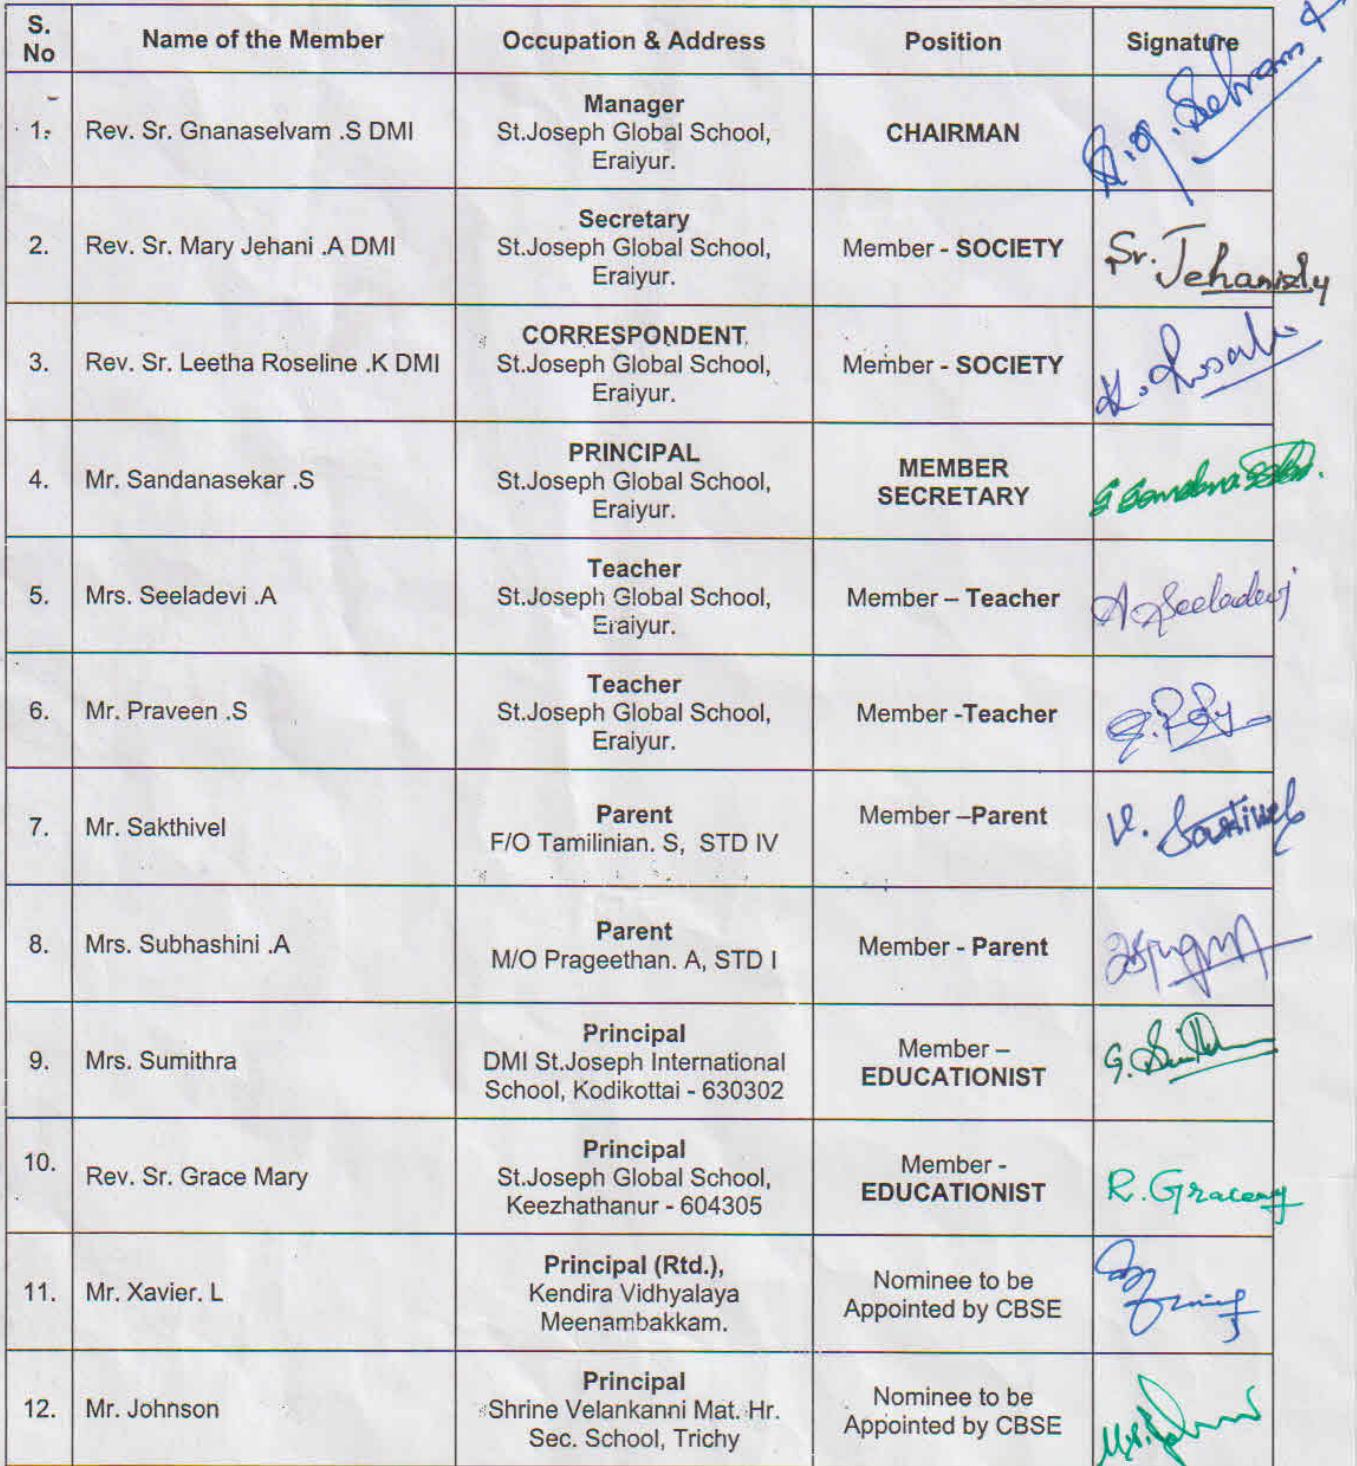 S. No Name of the Member Occupation & Address Position Signature
1. Rev. Sr. Gnanaselvam .S DMI
Manager
St.Joseph Global School,
Eraiyur.
CHAIRMAN
2. Rev. Sr. Mary Jehani .A DMI
Secretary
St.Joseph Global School,
Eraiyur.
Member - SOCIETY
Sr. Jehani
3. Rev. Sr. Leetha Roseline .K DMI
CORRESPONDENT
St.Joseph Global School,
Eraiyur.
Member - SOCIETY
4. Mr. Sandanasekar .S
PRINCIPAL
St.Joseph Global School,
Eraiyur.
MEMBER
SECRETARY
5. Mrs. Seeladevi .A
Teacher
St.Joseph Global School,
Eraiyur.
Member – Teacher
A. Seeladevi
6. Mr. Praveen .S
Teacher
St.Joseph Global School,
Eraiyur.
Member -Teacher
7. Mr. Sakthivel
Parent
F/O Tamilinian. S, STD IV
Member –Parent
8. Mrs. Subhashini .A
Parent
M/O Prageethan. A, STD I
Member - Parent
9. Mrs. Sumithra
Principal
DMI St.Joseph International
School, Kodikottai - 630302
Member –
EDUCATIONIST
10. Rev. Sr. Grace Mary
Principal
St.Joseph Global School,
Keezhathanur - 604305
Member -
EDUCATIONIST
11. Mr. Xavier. L
Principal (Rtd.),
Kendira Vidhyalaya
Meenambakkam.
Nominee to be
Appointed by CBSE
12. Mr. Johnson
Principal
Shrine Velankanni Mat. Hr.
Sec. School, Trichy
Nominee to be
Appointed by CBSE